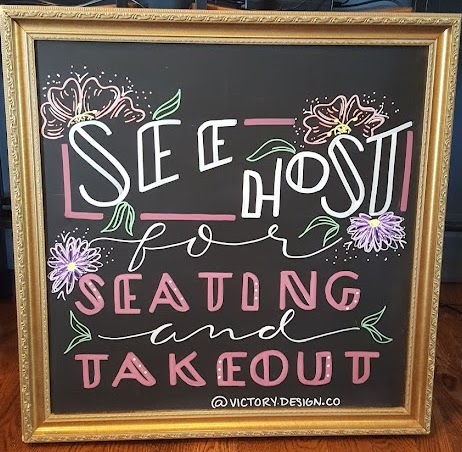 SEE HOST
for
SEATING
and
TAKEOUT
@VICTORY.DESIGN.CO